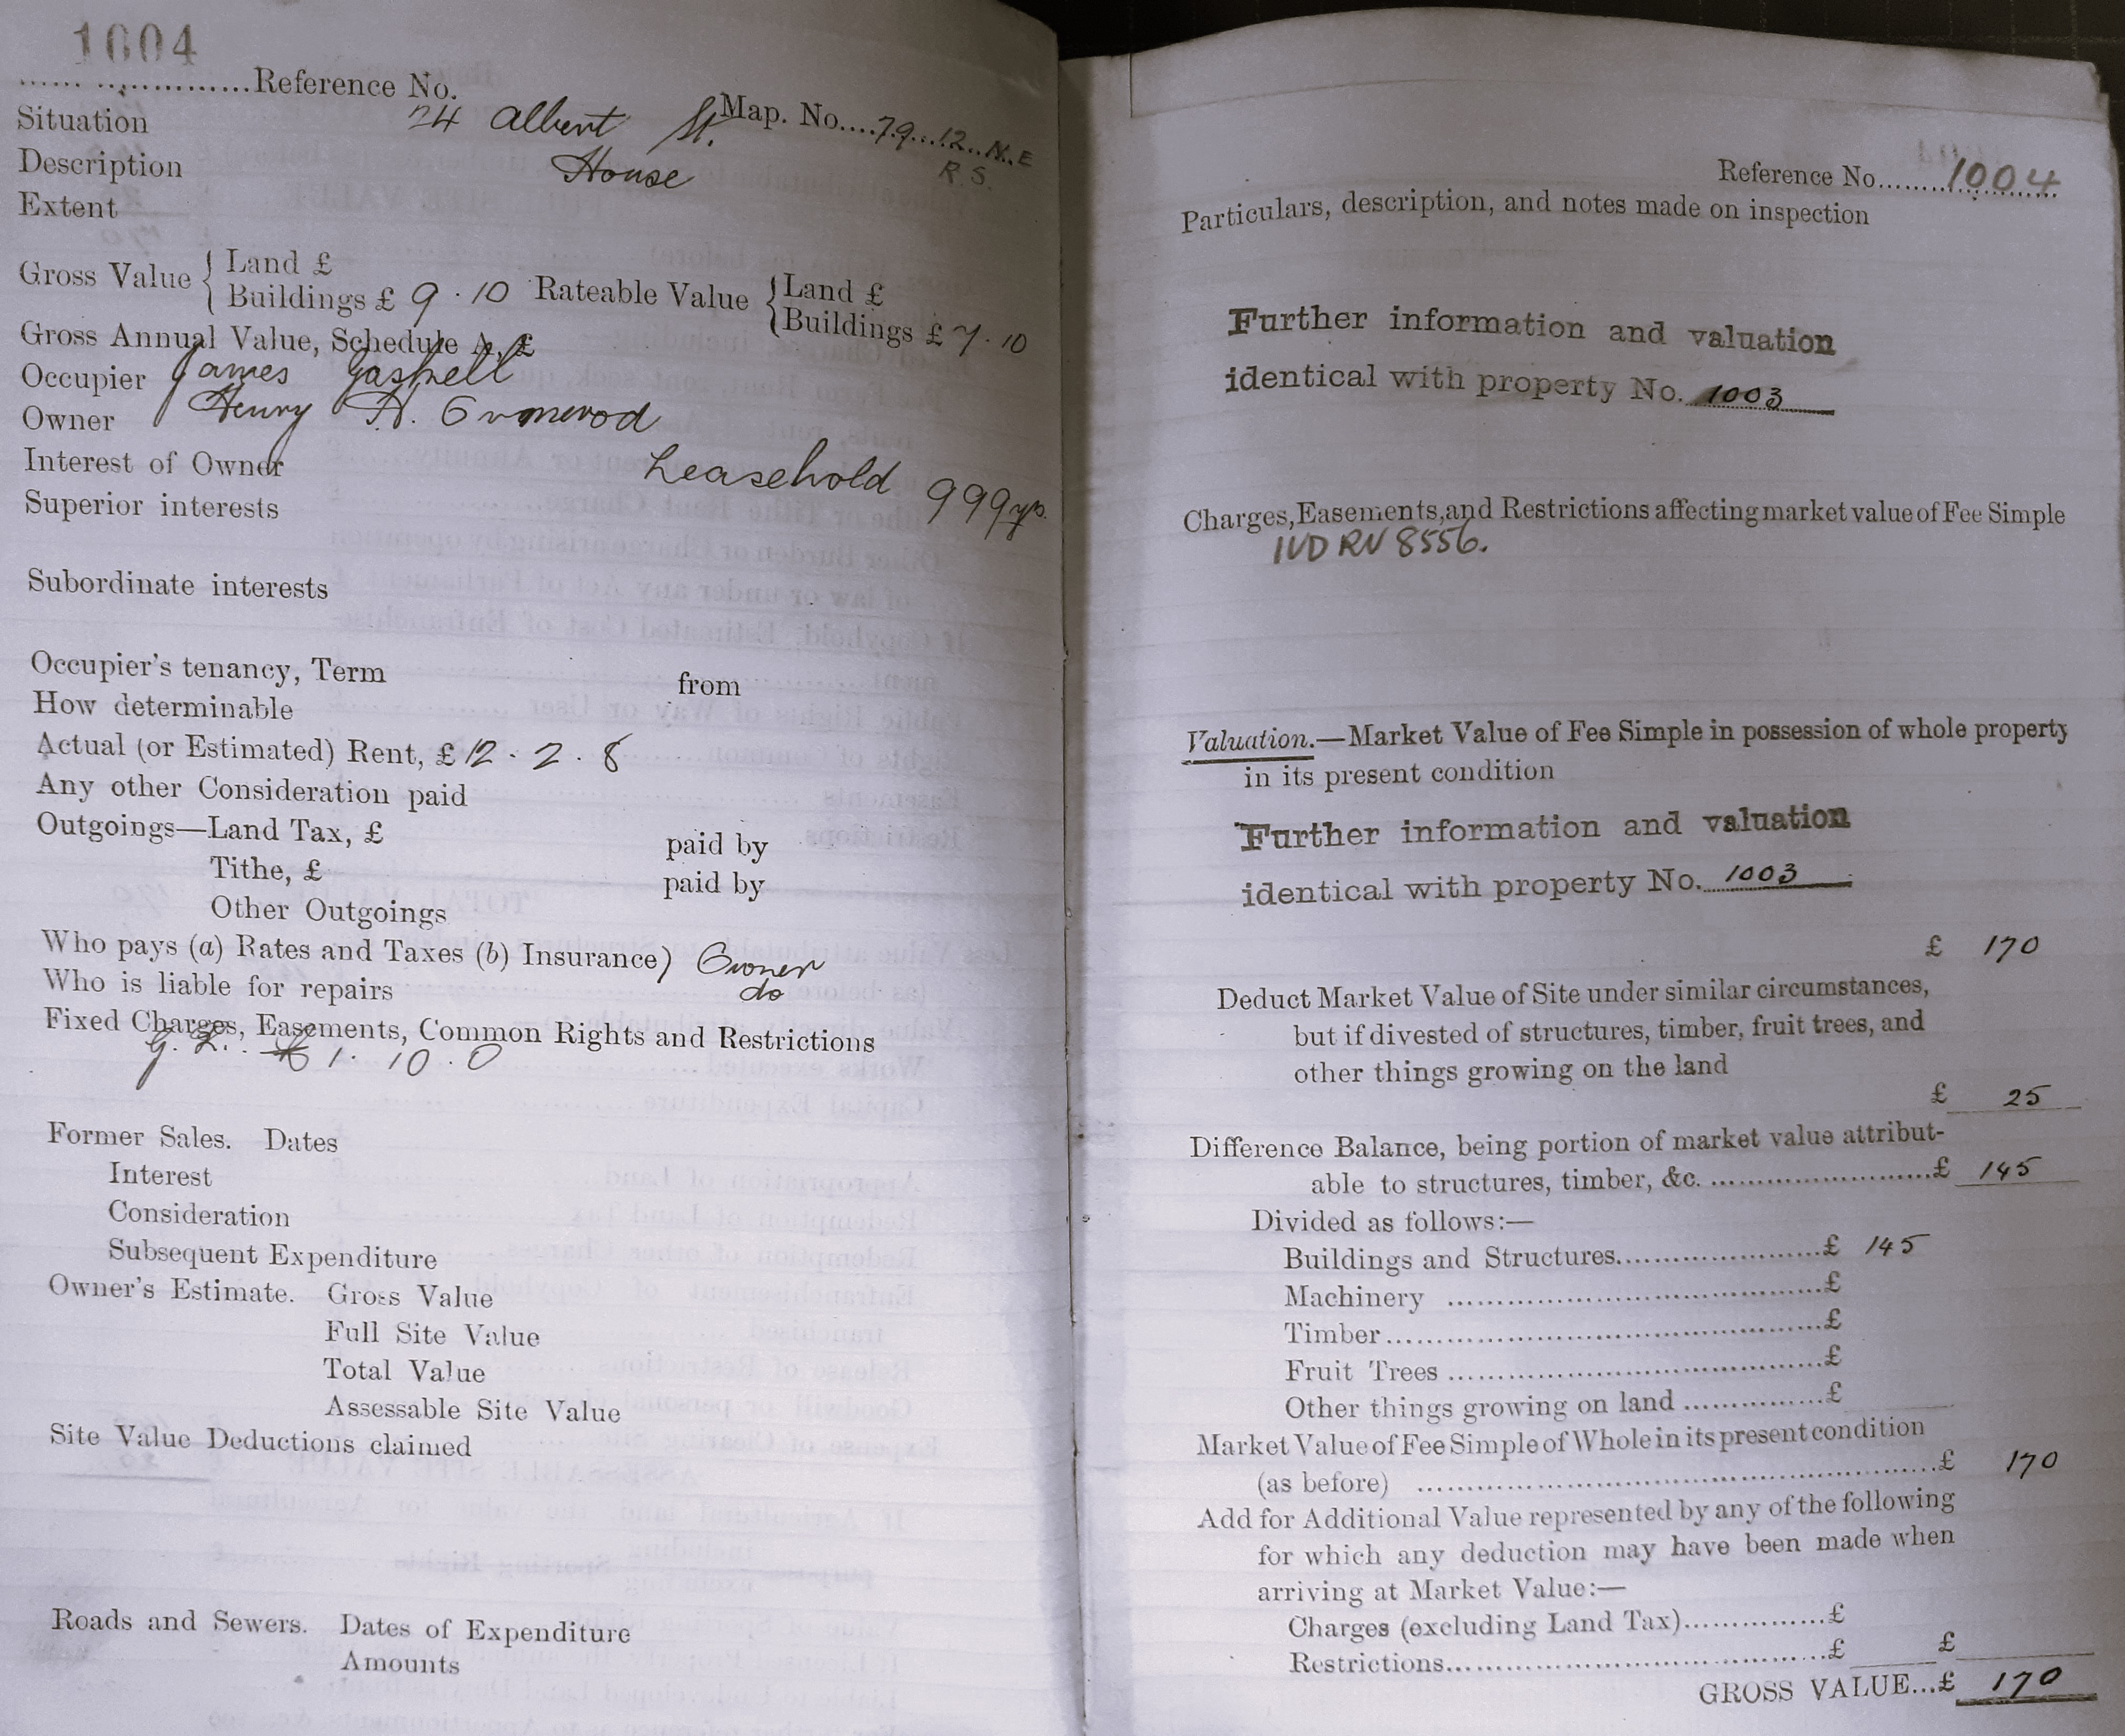 1004
..................Reference No.
Map. No....79...12..N.E
R.S.
Situation 24 Albert St.
Description House
Extent
Gross Value { Land £
Buildings £ 9 . 10 Rateable Value { Land £
Buildings £ 7 . 10
Gross Annual Value, Schedule A, £
Occupier James Gaskell
Owner Henry H. Ormerod
Interest of Owner Leasehold 999 yrs.
Superior interests
Subordinate interests
Occupier's tenancy, Term from
How determinable
Actual (or Estimated) Rent, £ 12 . 2 . 8
Any other Consideration paid
Outgoings—Land Tax, £ paid by
Tithe, £ paid by
Other Outgoings
Who pays (a) Rates and Taxes (b) Insurance) Owner
Who is liable for repairs do
Fixed Charges, Easements, Common Rights and Restrictions
£ 1 . 10 . 0
Former Sales. Dates
Interest
Consideration
Subsequent Expenditure
Owner's Estimate. Gross Value
Full Site Value
Total Value
Assessable Site Value
Site Value Deductions claimed
Roads and Sewers. Dates of Expenditure
Amounts
Reference No.........1004
Particulars, description, and notes made on inspection
Further information and valuation
identical with property No. 1003
Charges, Easements, and Restrictions affecting market value of Fee Simple
IVD RV 8556.
Valuation.—Market Value of Fee Simple in possession of whole property
in its present condition
Further information and valuation
identical with property No. 1003
£ 170
Deduct Market Value of Site under similar circumstances,
but if divested of structures, timber, fruit trees, and
other things growing on the land
£ 25
Difference Balance, being portion of market value attribut-
able to structures, timber, &c. ..........................£ 145
Divided as follows:—
Buildings and Structures.......................£ 145
Machinery ..........................................£
Timber.................................................£
Fruit Trees ..........................................£
Other things growing on land ...............£
Market Value of Fee Simple of Whole in its present condition
(as before) ..........................................................£ 170
Add for Additional Value represented by any of the following
for which any deduction may have been made when
arriving at Market Value:—
Charges (excluding Land Tax)...............£
Restrictions..........................................£ £
GROSS VALUE...£ 170